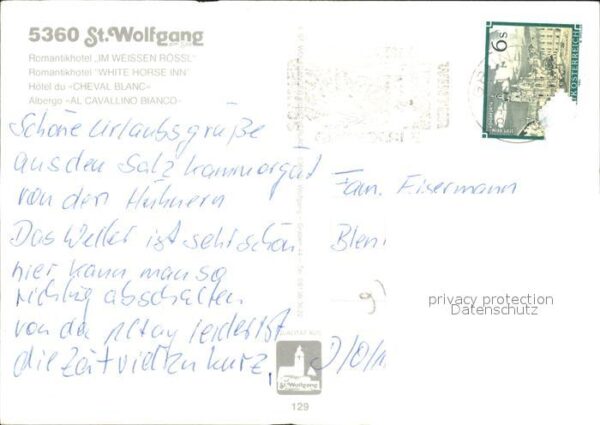 5360 St. Wolfgang
Romantikhotel „IM WEISSEN RÖSSL"
Romantikhotel "WHITE HORSE INN"
Hôtel du «CHEVAL BLANC»
Albergo «AL CAVALLINO BIANCO»
6s
Schöne Urlaubsgrüße
aus den Salzkammergut
von den Hühnern
Das Wetter ist sehr schön
hier kann man so
richtig abschalten
von der Alltag leider ist
die Zeit viel zu kurz,
Fam. Eisermann
privacy protection
Datenschutz
St. Wolfgang
129